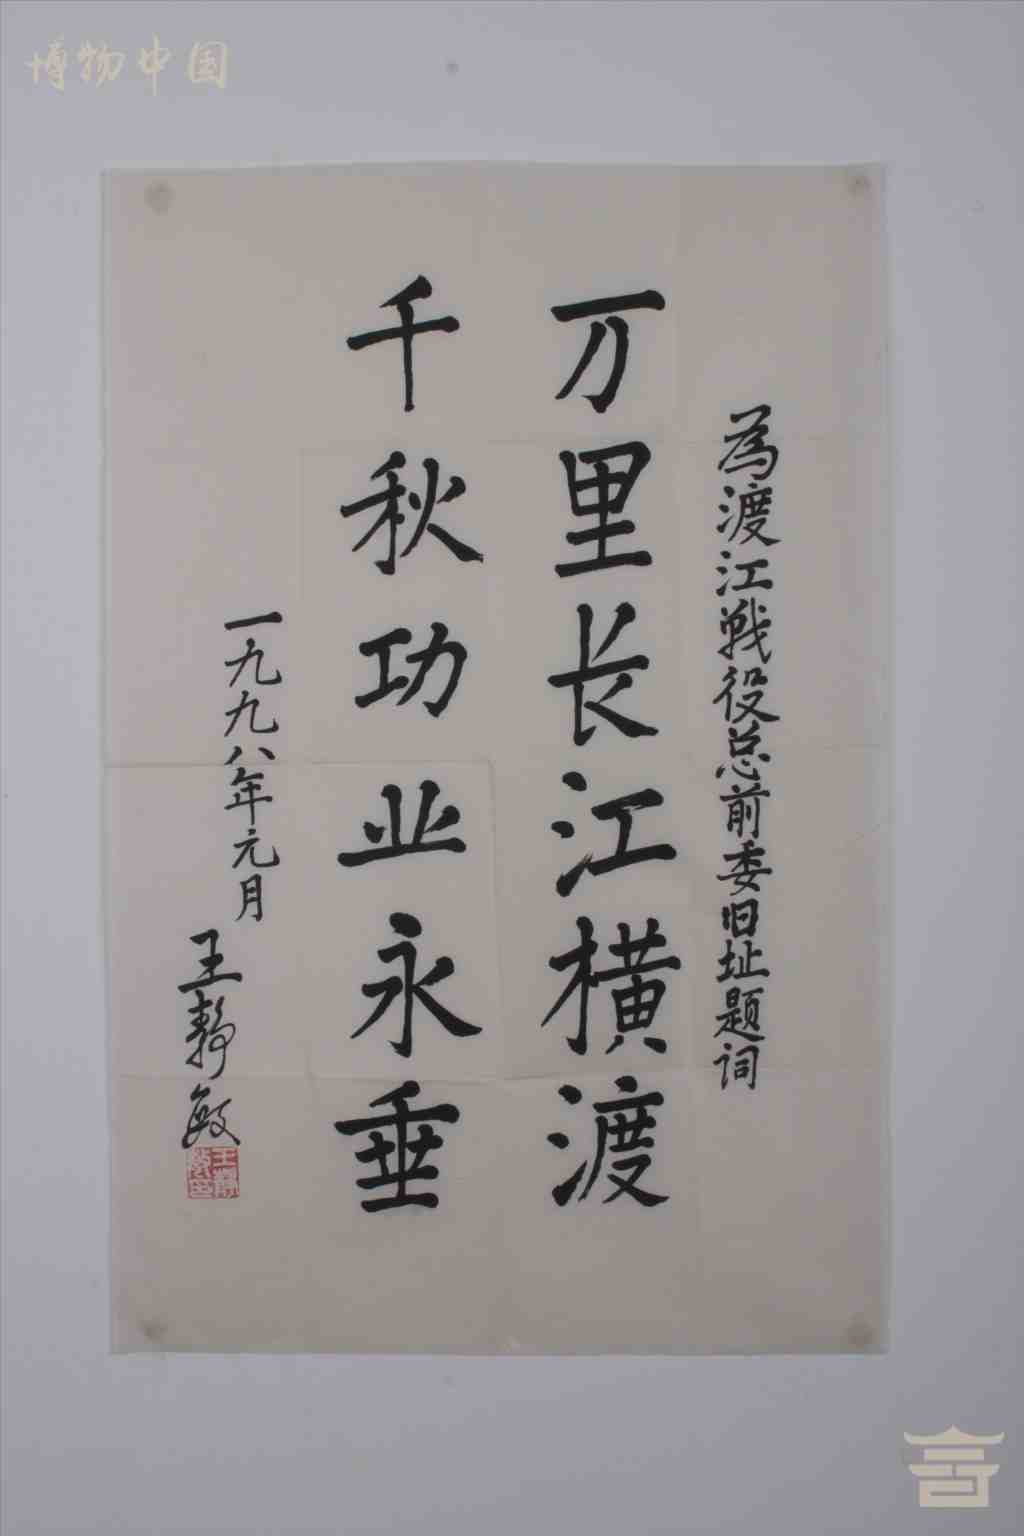 博物中国
為渡江战役总前委旧址题词
万里长江横渡
千秋功业永垂
一九九八年元月
王静敏